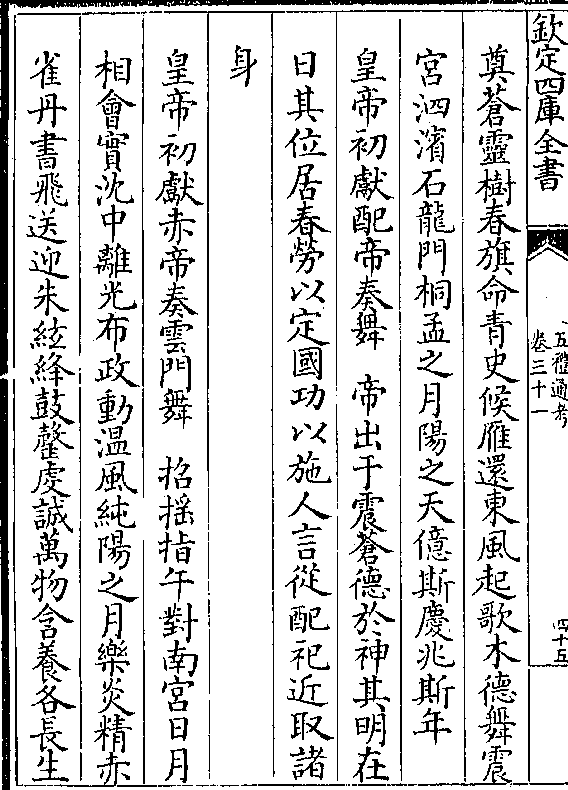 欽定四庫全書
五禮通考
卷三十一
四十五
奠蒼靈樹春旗命青史候雁還東風起歌木德舞震
宮泗濱石龍門桐孟之月陽之天億斯慶兆斯年
皇帝初獻配帝奏舞　帝出于震蒼德於神其明在
日其位居春勞以定國功以施人言從配祀近取諸
身
皇帝初獻赤帝奏雲門舞　招搖指午對南宮日月
相會實沈中離光布政動温風純陽之月樂炎精赤
雀丹書飛送迎朱絃絳鼓罄䖍誠萬物含養各長生